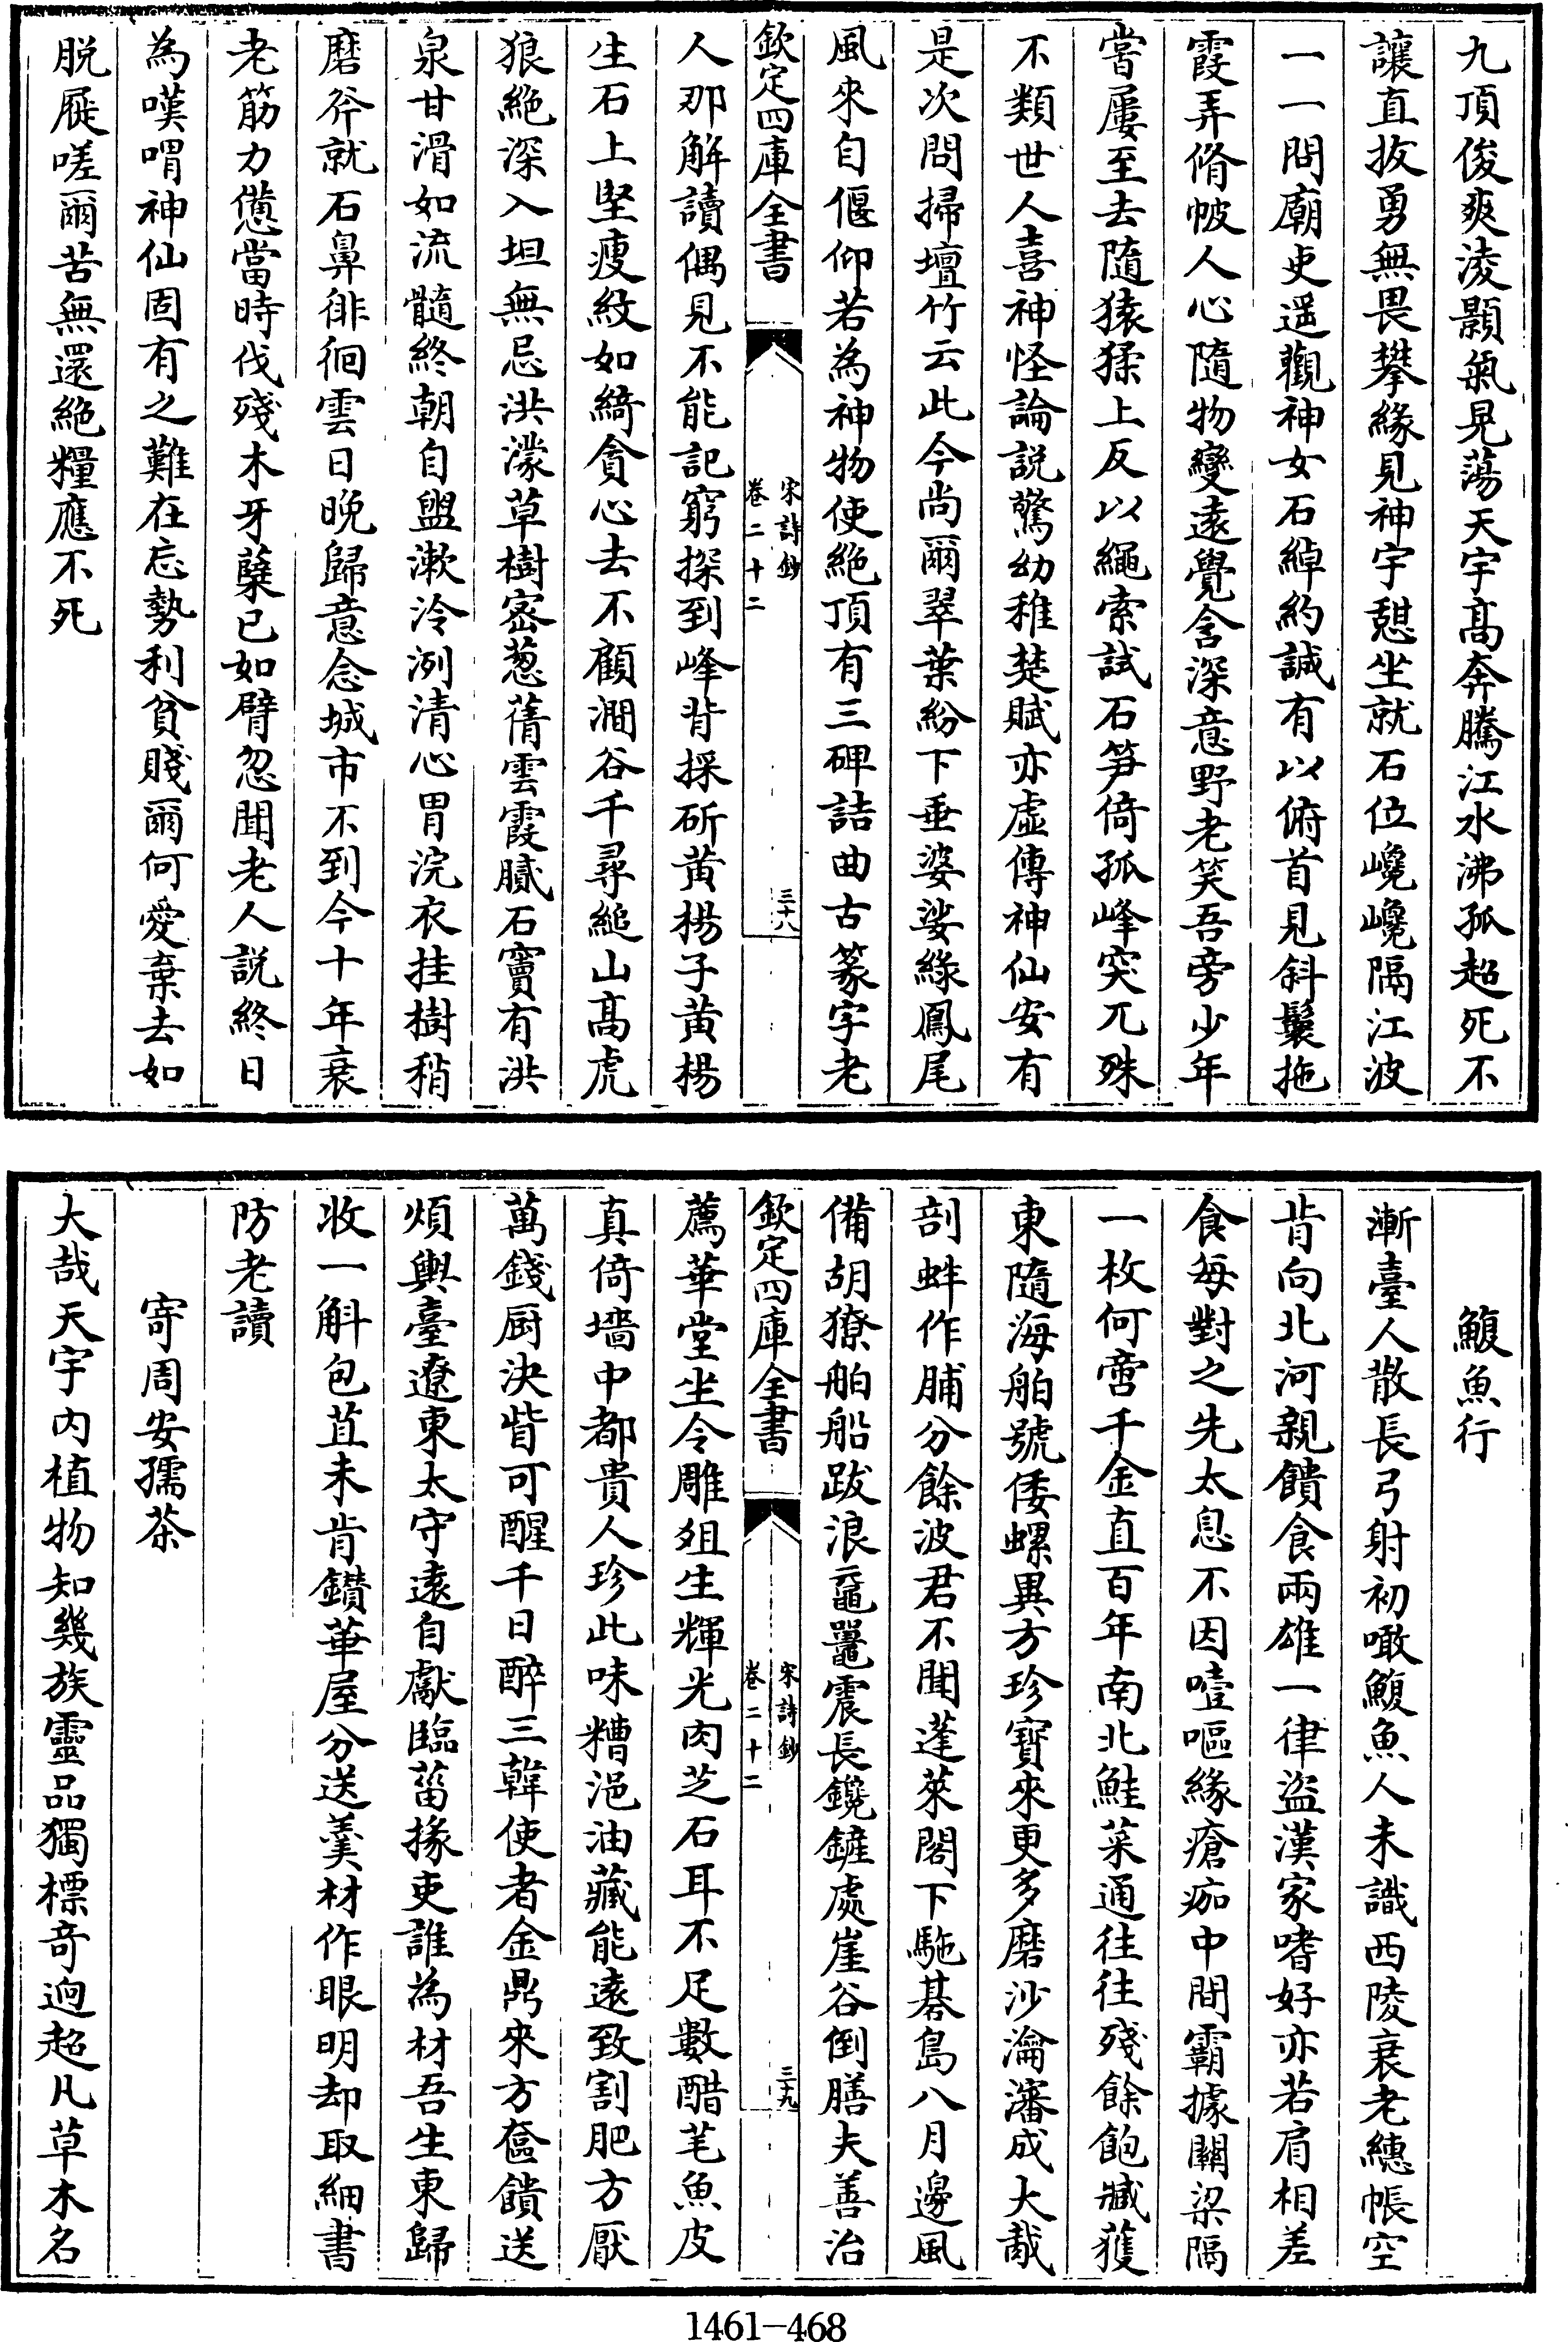 九頂俊爽淩顥氣晃蕩天宇髙奔騰江水沸孤超死不
讓直抜勇無畏攀緣見神宇憇坐就石位巉巉隔江波
一一問廟吏遥觀神女石綽約誠有以俯首見斜鬟拖
霞弄脩帔人心隨物變遠覺含深意野老笑吾旁少年
嘗屢至去隨猿猱上反以繩索試石笋倚孤峰突兀殊
不類世人喜神怪論説驚幼稚楚賦亦虚傳神仙安有
是次問掃壇竹云此今尚爾翠葉紛下垂婆娑綠鳳尾
風來自偃仰若為神物使絶頂有三碑詰曲古篆字老
欽定四庫全書
宋詩鈔
卷二十二
三十八
人那解讀偶見不能記窮探到峰背採斫黄楊子黄楊
生石上堅瘦紋如綺貪心去不顧澗谷千尋縋山髙虎
狼絶深入坦無忌洪濛草樹宻葱蒨雲霞膩石竇有洪
泉甘滑如流髓終朝自盥漱泠洌清心胃浣衣挂樹稍
磨斧就石鼻徘徊雲日晚歸意念城市不到今十年衰
老筋力憊當時伐殘木牙蘖已如臂忽聞老人説終日
為嘆喟神仙固有之難在忘勢利貧賤爾何愛棄去如
脱屣嗟爾苦無還絶糧應不死
鰒魚行
漸臺人散長弓射初噉鰒魚人未識西陵衰老繐帳空
肯向北河親饋食兩雄一律盜漢家嗜好亦若肩相差
食每對之先太息不因噎嘔緣瘡痂中間霸據關梁隔
一枚何啻千金直百年南北鮭菜通往往殘餘飽臧獲
東隨海舶號倭螺異方珍寳來更多磨沙瀹瀋成大胾
剖蚌作脯分餘波君不聞蓬萊閣下駞碁島八月邊風
備胡獠舶船跋浪黿鼉震長鑱鏟處崖谷倒膳夫善治
欽定四庫全書
宋詩鈔
卷二十二
三十九
薦華堂坐令雕俎生輝光肉芝石耳不足數醋芼魚皮
真倚墻中都貴人珍此味糟浥油藏能遠致割肥方厭
萬錢厨決眥可醒千日醉三韓使者金鼎來方奩饋送
煩輿臺遼東太守遠自獻臨菑掾吏誰為材吾生東歸
收一斛包苴未肯鑚華屋分送羹材作眼明却取細書
防老讀
寄周安孺茶
大哉天宇内植物知幾族靈品獨標竒逈超凡草木名
1461—468